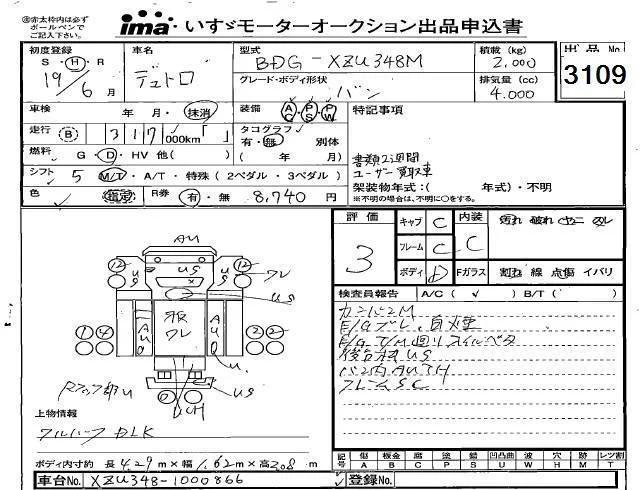 ㊟赤太枠内は必ず
ボールペンで
ご記入下さい。
ima いすゞモーターオークション出品申込書
初度登録 車名 型式 BDG-XZU348M 積載 (kg) 2,000 出品No
S・H・R 19/6月 デュトロ グレード・ボディ形状 バン 排気量 (cc) 4,000 3109
車検 年・月・抹消 装備 AC PS PW 特記事項
走行 B 317,000km「 」 タコグラフ 有・無 別体
燃料 G・D・HV 他( ) ( 年 月)
書類2週間
ユーザー買取車
シフト 5 M/T・A/T・特殊(2ペダル・3ペダル) 架装物年式:( 年式)・不明
※不明の場合は、不明に○をする。
色 鑑定 R券 有・無 8,740円
評価 キャブ C 内装 汚れ 破れ ヤニ スレ
3 フレーム C C
ボディ D Fガラス 割れ 線 点傷 イバリ
検査員報告 A/C( ✓ ) B/T( )
E/Gブレ、白煙
E/G T/M廻りオイルベタ
バン内AUTH
フレームSC
AU
12 US US US 12 ワレ
US
1 4 AUG ワレ AUG 2 2
U
US
UCH
上物情報
DLK
ボディ内寸約 長4.29m×幅1.62m×高2.08m
記号 傷A 板金B 腐C 塗P 錆S 凹凸曲U 波W 穴H 跡M レツ割T
車台No. XZU348-1000866 登録No.